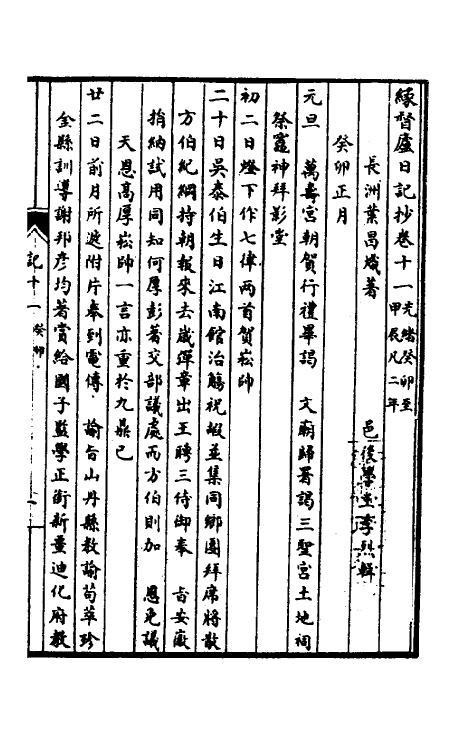 緣督廬日記抄卷十一光緒癸卯至甲辰凡二年
長洲葉昌熾著　邑後學王季烈輯
癸卯正月
元旦　萬壽宮朝賀行禮畢謁　文廟歸署謁三聖宮土地祠
祭竈神拜影堂
初二日燈下作七律兩首賀崧帥
二十日吳泰伯生日江南館治觴祝嘏並集同鄉團拜席將散
方伯紀綱持朝報來去歲彈章出王聘三侍御奉　旨安徽
捐納試用同知何厚彭著交部議處而方伯則加　恩免議
天恩高厚崧帥一言亦重於九鼎已
廿二日前月所遞附片奉到電傳　諭旨山丹縣教諭苟萃珍
金縣訓導謝邦彥均著賞給國子監學正銜新疆迪化府教
記十一　癸卯
一